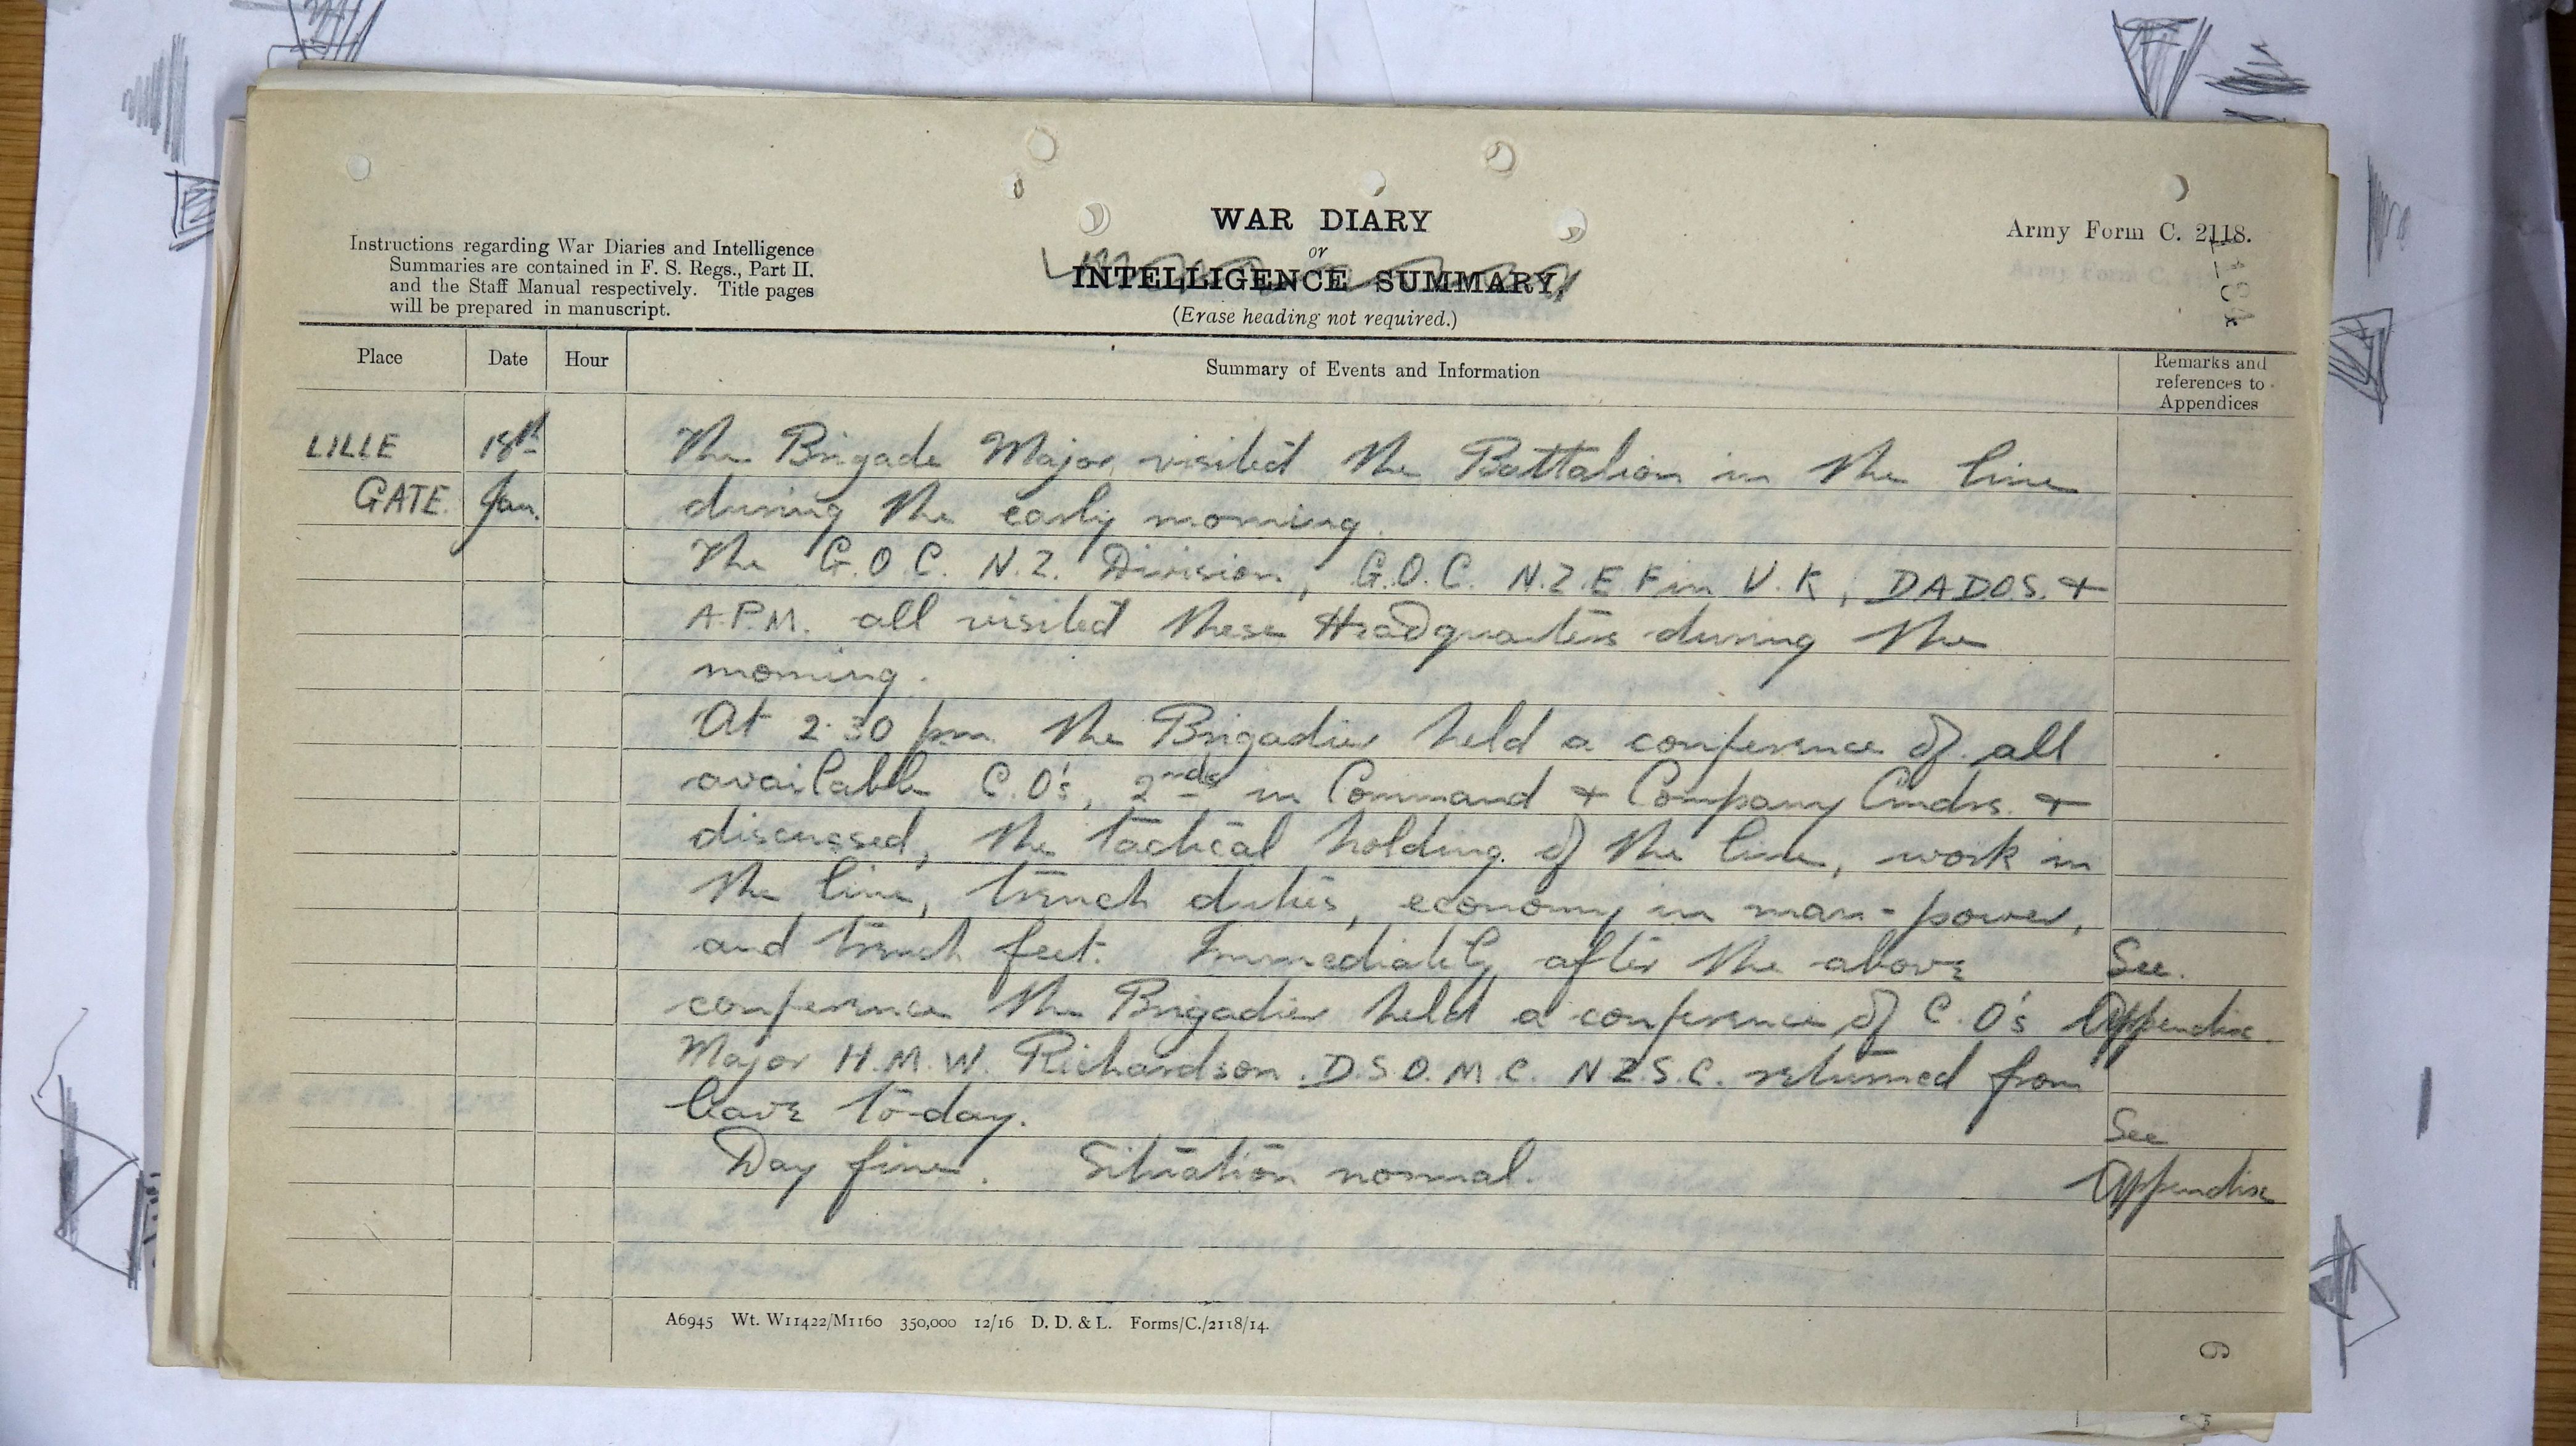 WAR DIARY
or
INTELLIGENCE SUMMARY.
(Erase heading not required.)
Army Form C. 2118.
Instructions regarding War Diaries and Intelligence
Summaries are contained in F. S. Regs., Part II.
and the Staff Manual respectively. Title pages
will be prepared in manuscript.
Place Date Hour Summary of Events and Information Remarks and
references to
Appendices
LILLE 18th The Brigade Major visited the Battalion in the line
GATE. Jan. during the early morning.
The G.O.C. N.Z. Division, G.O.C. N.Z.E.F in U.K, DADOS. +
A.P.M. all visited these Headquarters during the
morning.
At 2.30 pm the Brigadier held a conference of all
available C.O's, 2nds in Command + Company Cmdrs. +
discussed, the tactical holding of the line, work in
the line, trench duties, economy in man-power,
and trench feet. Immediately after the above See.
conference the Brigadier held a conference of C.O's Appendix.
Major H.M.W. Richardson. D.S.O. M.C. N.Z.S.C. returned from
leave to-day. See
Day fine. Situation normal. Appendix
A6945 Wt. W11422/M1160 350,000 12/16 D. D. & L. Forms/C./2118/14.
6